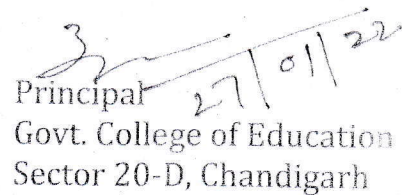 27/01/22
Principal
Govt. College of Education
Sector 20-D, Chandigarh